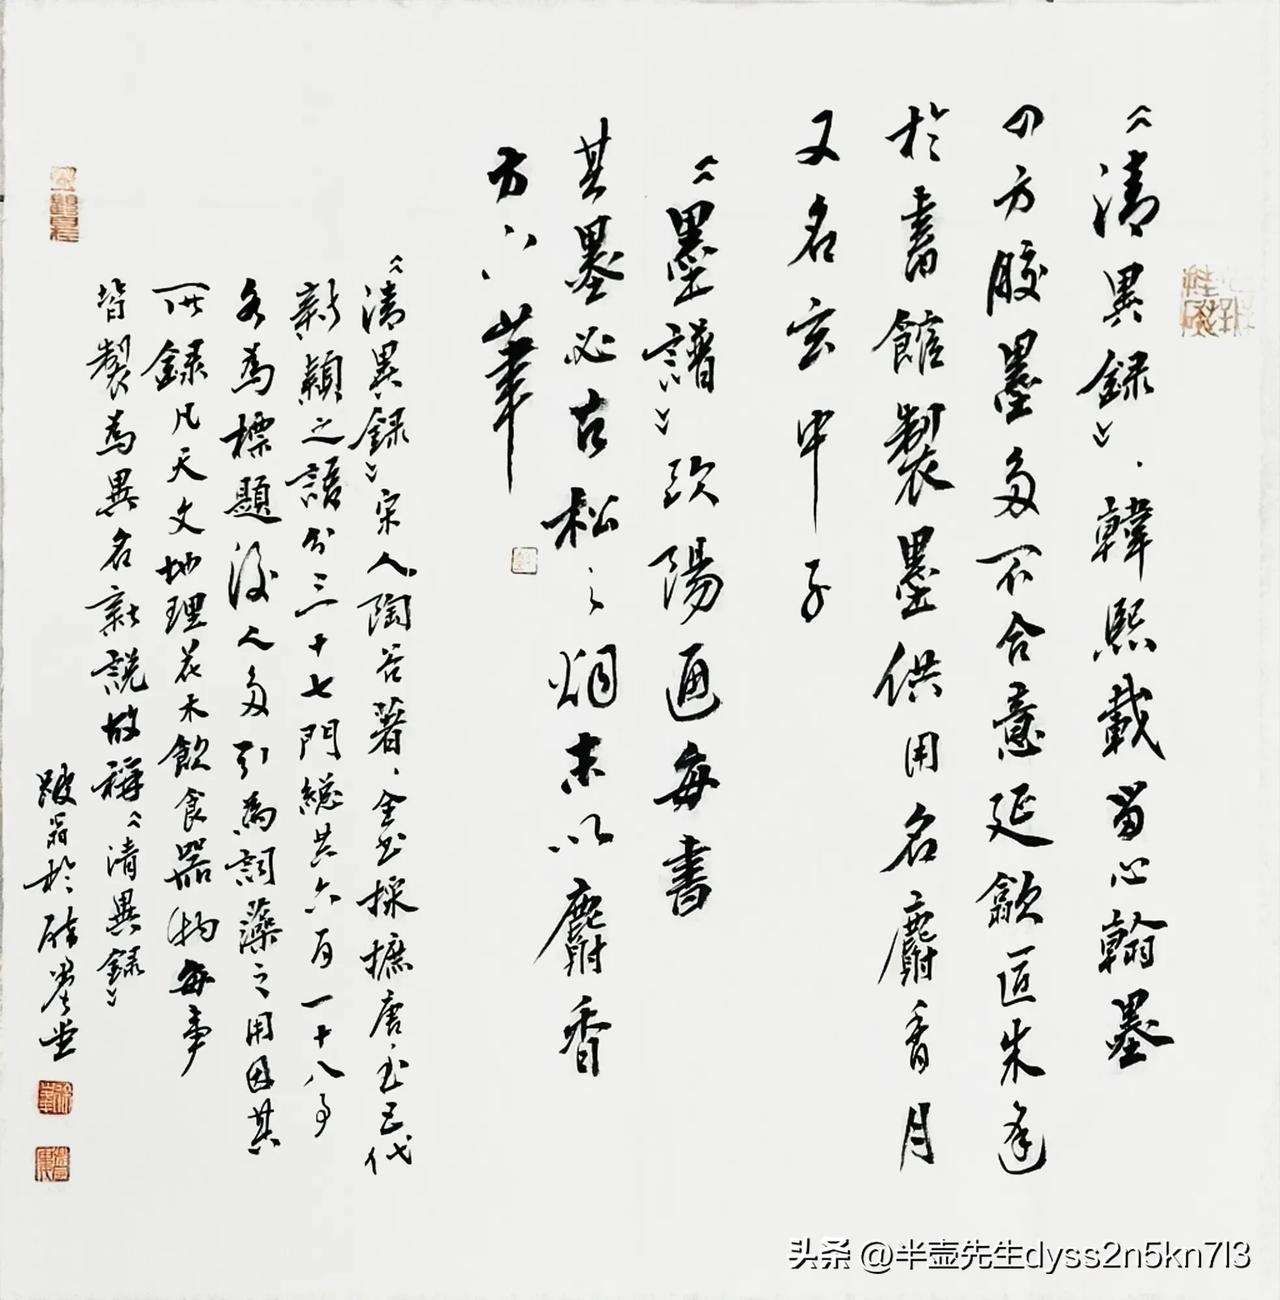 《清異録》.韓熙載留心翰墨
四方膠墨多不合意延歙匠朱逢
於書館製墨供用名麝香月
又名玄中子
《墨譜》歐陽通每書
其墨必古松之烟末以麝香
方下筆
《清異録》宋人陶谷著、全書採摭唐、五代
新穎之語分三十七門總共六百一十八事
各為標題後人多引為詞藻之用因其
所録凡天文地理花木飲食器物每事
皆製為異名新説故稱《清異録》
頭条 @半壶先生dyss2n5kn7l3